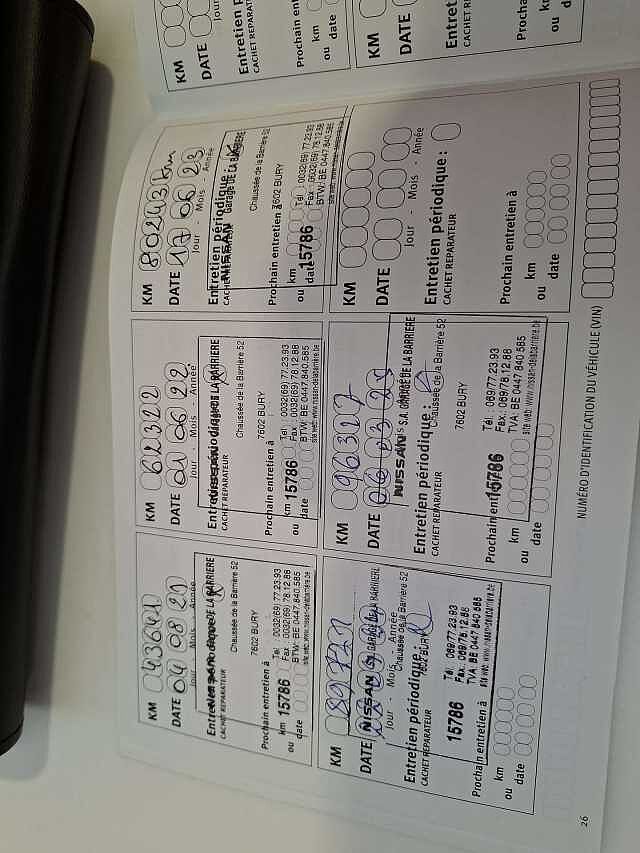 KM 43641
DATE 04 08 21
Jour - Mois - Année
Entretien périodique :
GARAGE DE LA BARRIERE
CACHET REPARATEUR
Chaussée de la Barrière 52
7602 BURY
Prochain entretien à
Tél : 0032(69) 77.23.93
km
15786
Fax : 0032(69) 78.12.88
ou date
BTW: BE 0447.840.585
site web: www.nissan-delabarriere.be
KM 62322
DATE 01 06 22
Jour - Mois - Année
Entretien périodique :
GARAGE DE LA BARRIERE
CACHET REPARATEUR
Chaussée de la Barrière 52
7602 BURY
Prochain entretien à
Tél : 0032(69) 77.23.93
km
15786
Fax : 0032(69) 78.12.88
ou date
BTW: BE 0447.840.585
site web: www.nissan-delabarriere.be
KM 80243 km
DATE 17 06 23
Jour - Mois - Année
Entretien périodique :
NISSAN Garage DE LA BARRIERE
CACHET REPARATEUR
Chaussée de la Barrière 52
7602 BURY
Prochain entretien à
Tél : 0032(69) 77.23.93
km
Fax : 0032(69) 78.12.88
ou date
15786
BTW: BE 0447.840.585
KM
DATE
NISSAN S.A. GARAGE DE LA BARRIERE
Jour - Mois - Année
Chaussée de la Barrière 52
Entretien périodique :
7602 BURY
CACHET REPARATEUR
Tél : 069/77.23.93
15786
Fax : 069/78.12.88
TVA: BE 0447.840.585
Prochain entretien à
site web: www.nissan-delabarriere.be
km
ou date
KM 96327
DATE 06 03 25
NISSAN S.A. GARAGE DE LA BARRIERE
Entretien périodique :
Chaussée de la Barrière 52
CACHET REPARATEUR
7602 BURY
Tél : 069/77.23.93
Prochain entretien à
15786
Fax : 069/78.12.88
km
TVA: BE 0447.840.585
ou date
site web: www.nissan-delabarriere.be
KM
DATE
Jour - Mois - Année
Entretien périodique :
CACHET REPARATEUR
Prochain entretien à
km
ou date
NUMÉRO D'IDENTIFICATION DU VÉHICULE (VIN)
26
KM
DATE
Jour
Entretien p
CACHET REPARAT
Prochain entret
km
ou
KM
DATE
Entret
CACHET
Procha
km
ou